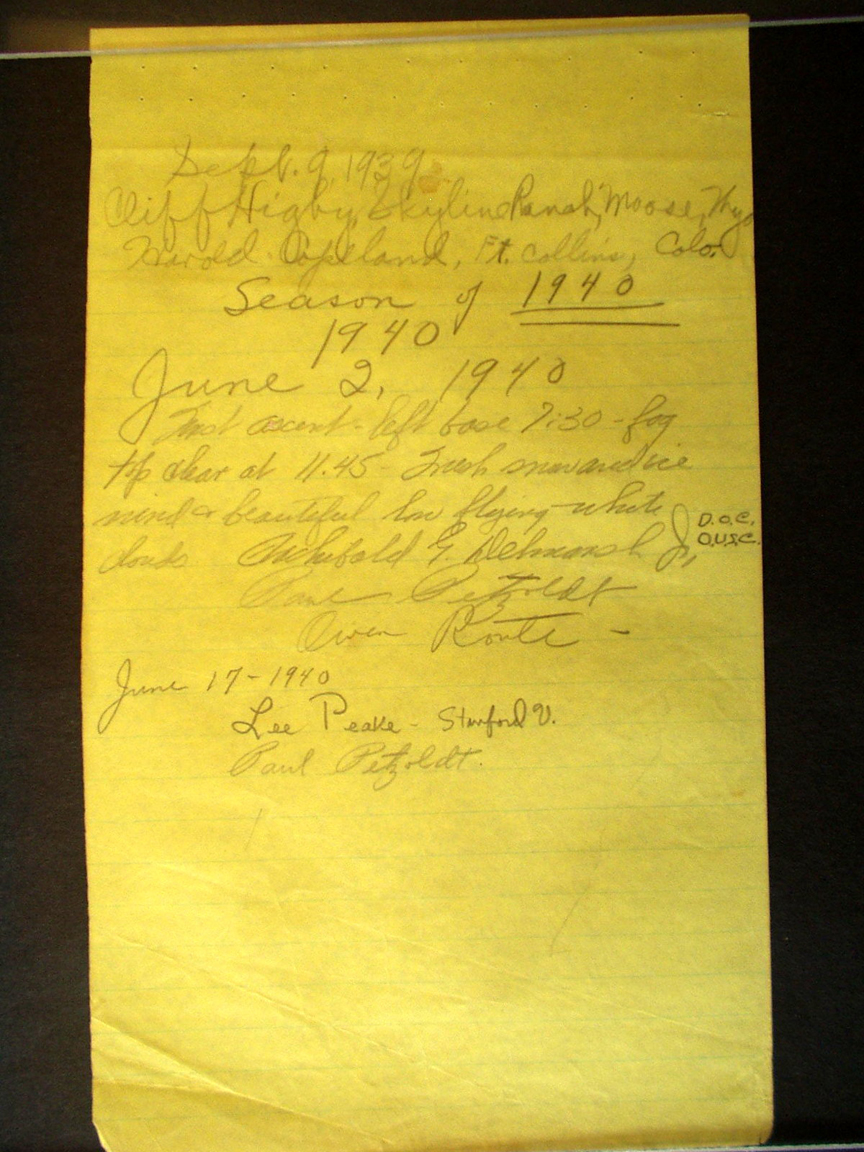 Sept. 9, 1939
Cliff Higby, Skyline Ranch, Moose, Wyo
Harold Copeland, Ft. Collins, Colo.
Season of 1940
1940
June 2, 1940
First ascent - left base 7:30 - fog
top clear at 11.45 - Fresh snow and ice
wind & beautiful low flying white
clouds Archibald G. Delmarsh Jr,
D.O.C.
O.U.S.C.
Paul Petzoldt
Owen Route -
June 17 - 1940
Lee Peake - Stanford U.
Paul Petzoldt.